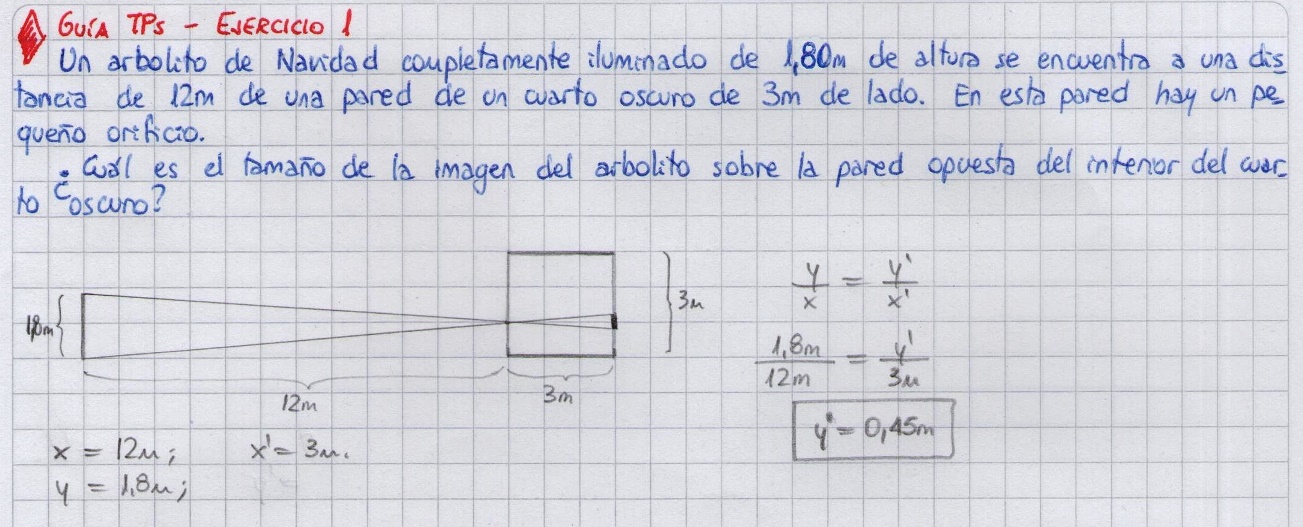 GUÍA TPs - EJERCICIO 1
Un arbolito de Navidad completamente iluminado de 1,80m de altura se encuentra a una dis
tancia de 12m de una pared de un cuarto oscuro de 3m de lado. En esta pared hay un pe
queño orificio.
¿Cuál es el tamaño de la imagen del arbolito sobre la pared opuesta del interior del cuar
to oscuro?
1,8m
3m
12m
3m
y/x = y'/x'
1,8m/12m = y'/3m
y' = 0,45m
x = 12m; x' = 3m.
y = 1,8m;